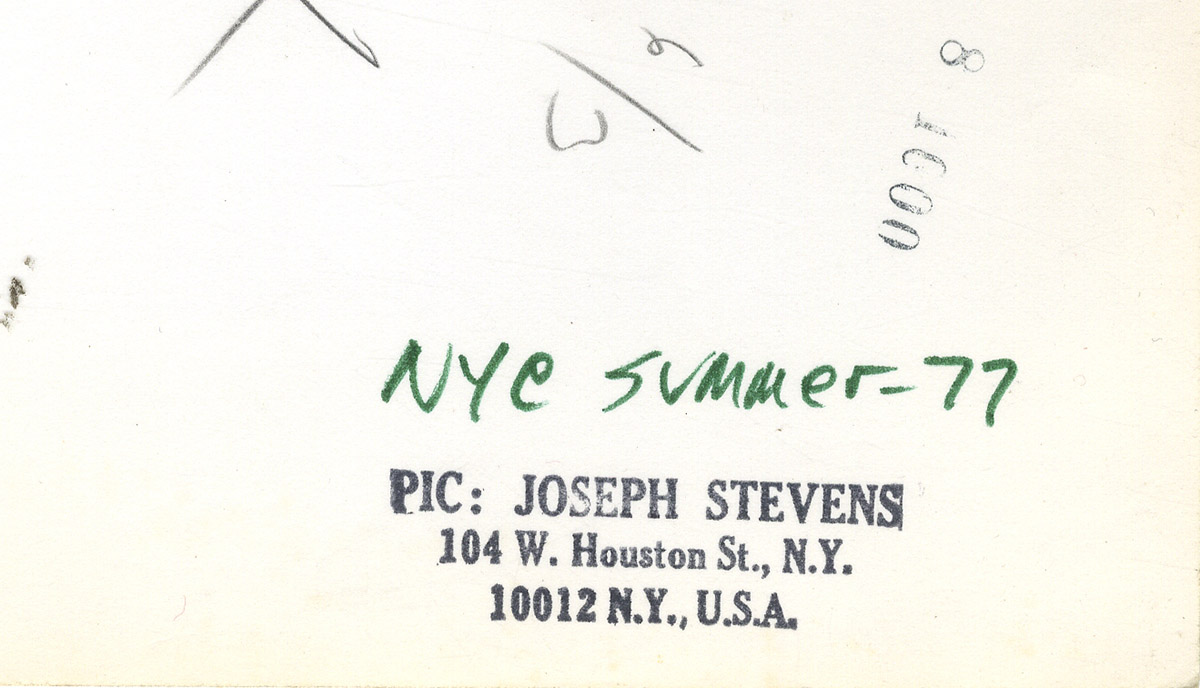 NYC summer-77
PIC: JOSEPH STEVENS
104 W. Houston St., N.Y.
10012 N.Y., U.S.A.